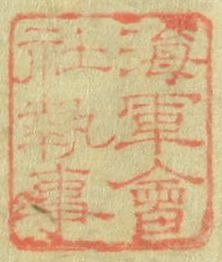 海軍會
社執事